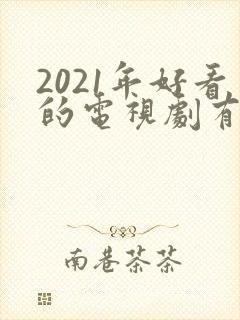 2021年好看
的電視劇有
南巷茶茶